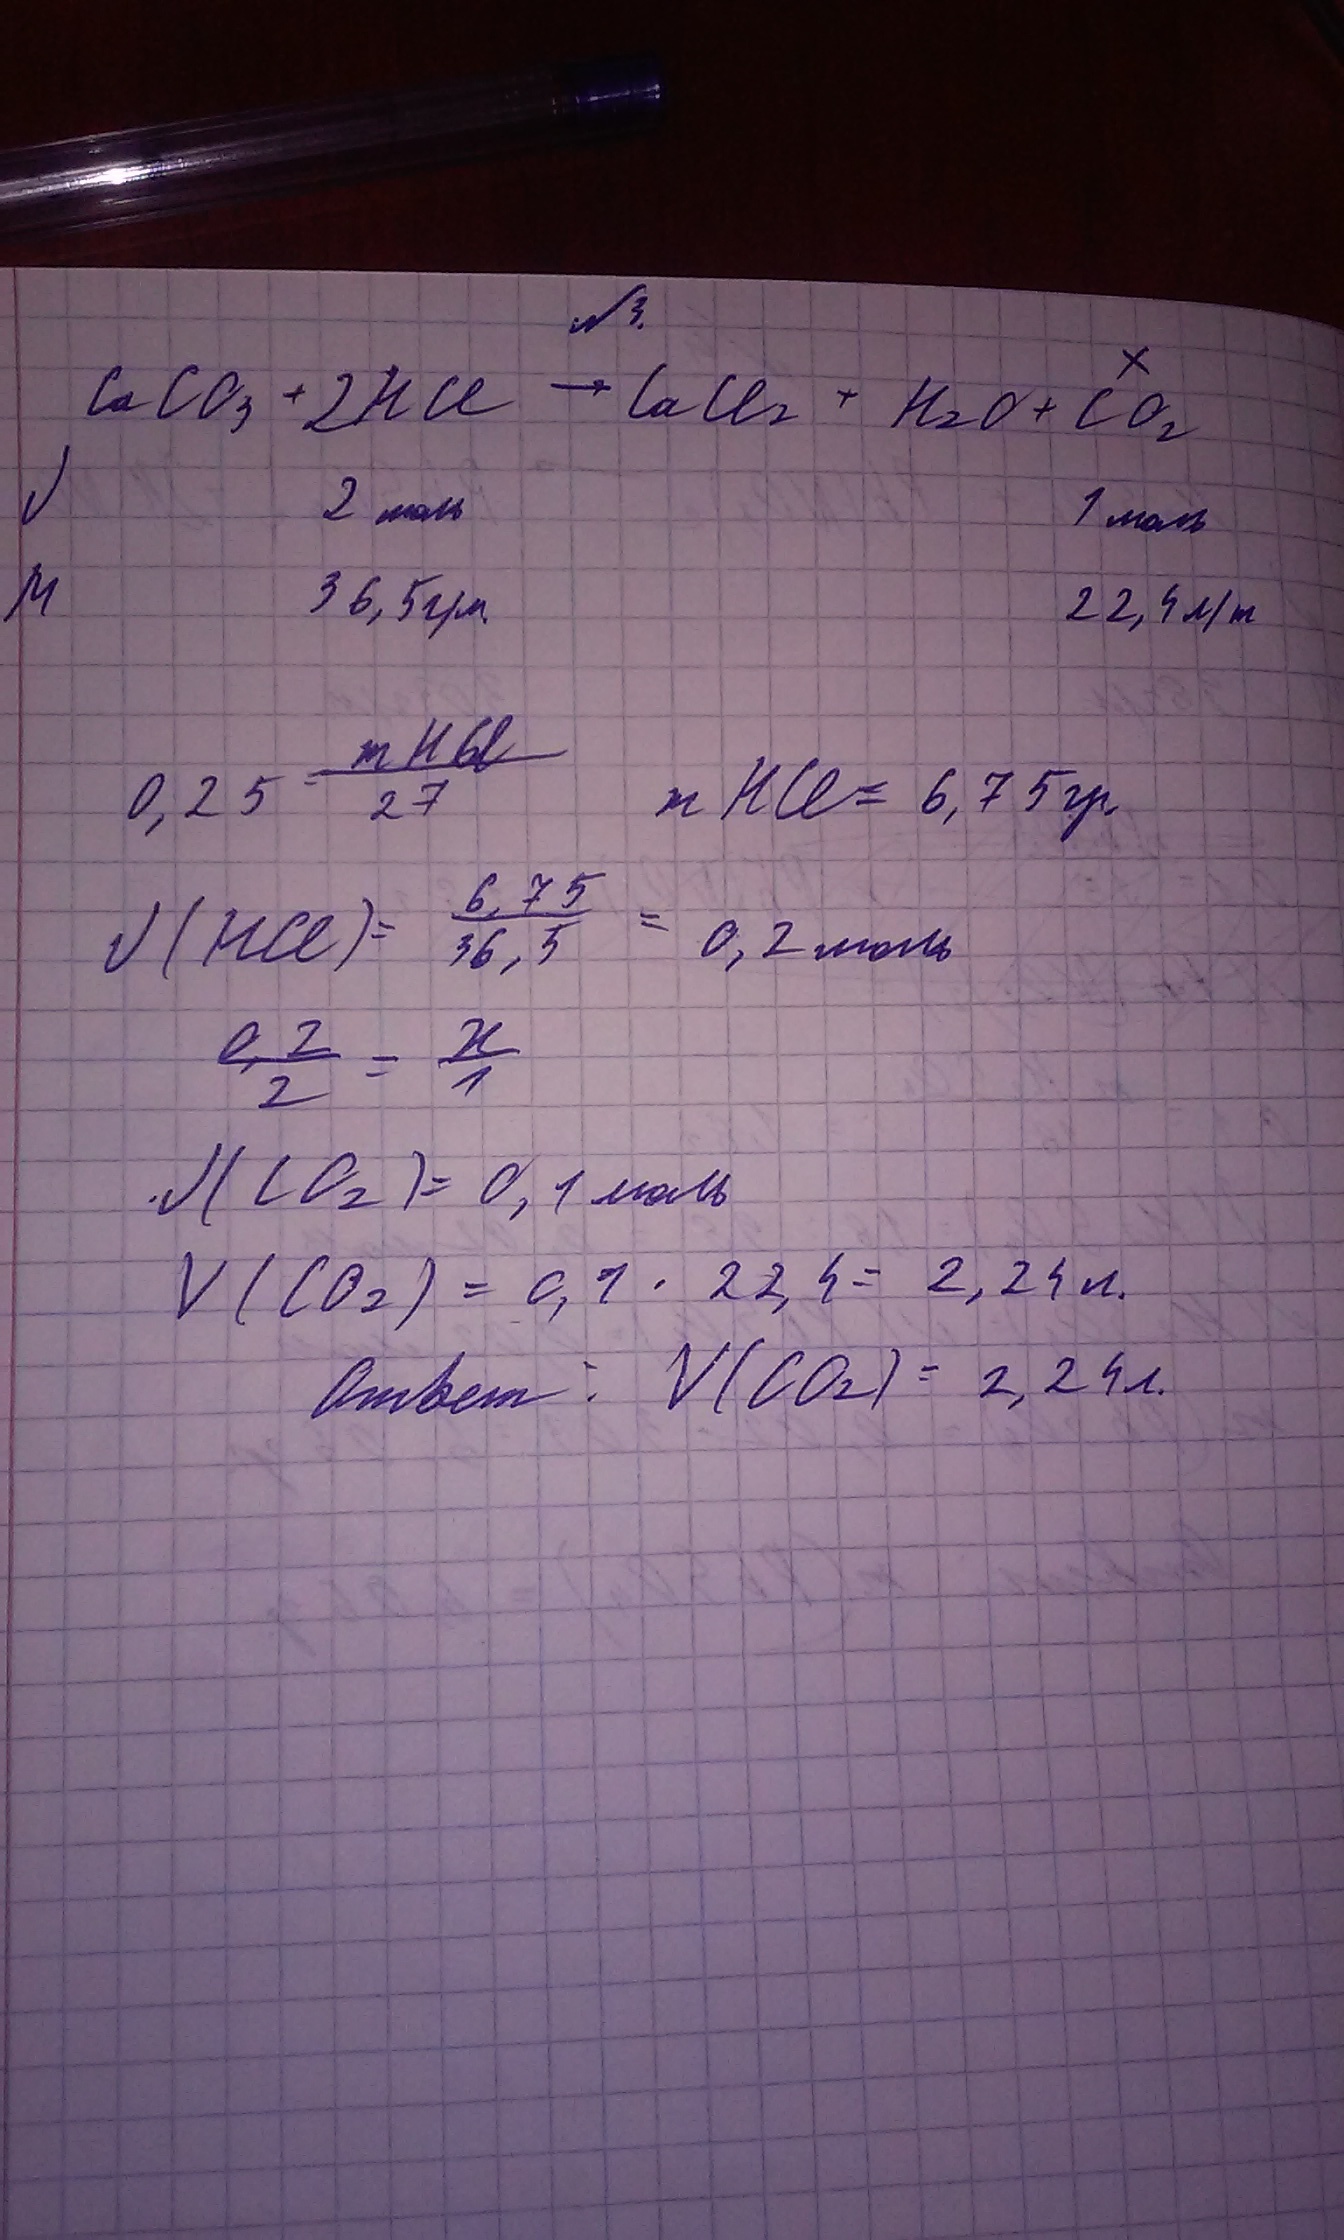 №3.
x
CaCO3 + 2HCl → CaCl2 + H2O + CO2
ν 2 моль 1 моль
M 36,5гр. 22,4 л/м
0,25 = mHCl / 27 mHCl = 6,75гр.
ν(HCl) = 6,75 / 36,5 = 0,2 моль
0,2 / 2 = x / 1
ν(CO2) = 0,1 моль
V(CO2) = 0,1 · 22,4 = 2,24 л.
Ответ: V(CO2) = 2,24л.